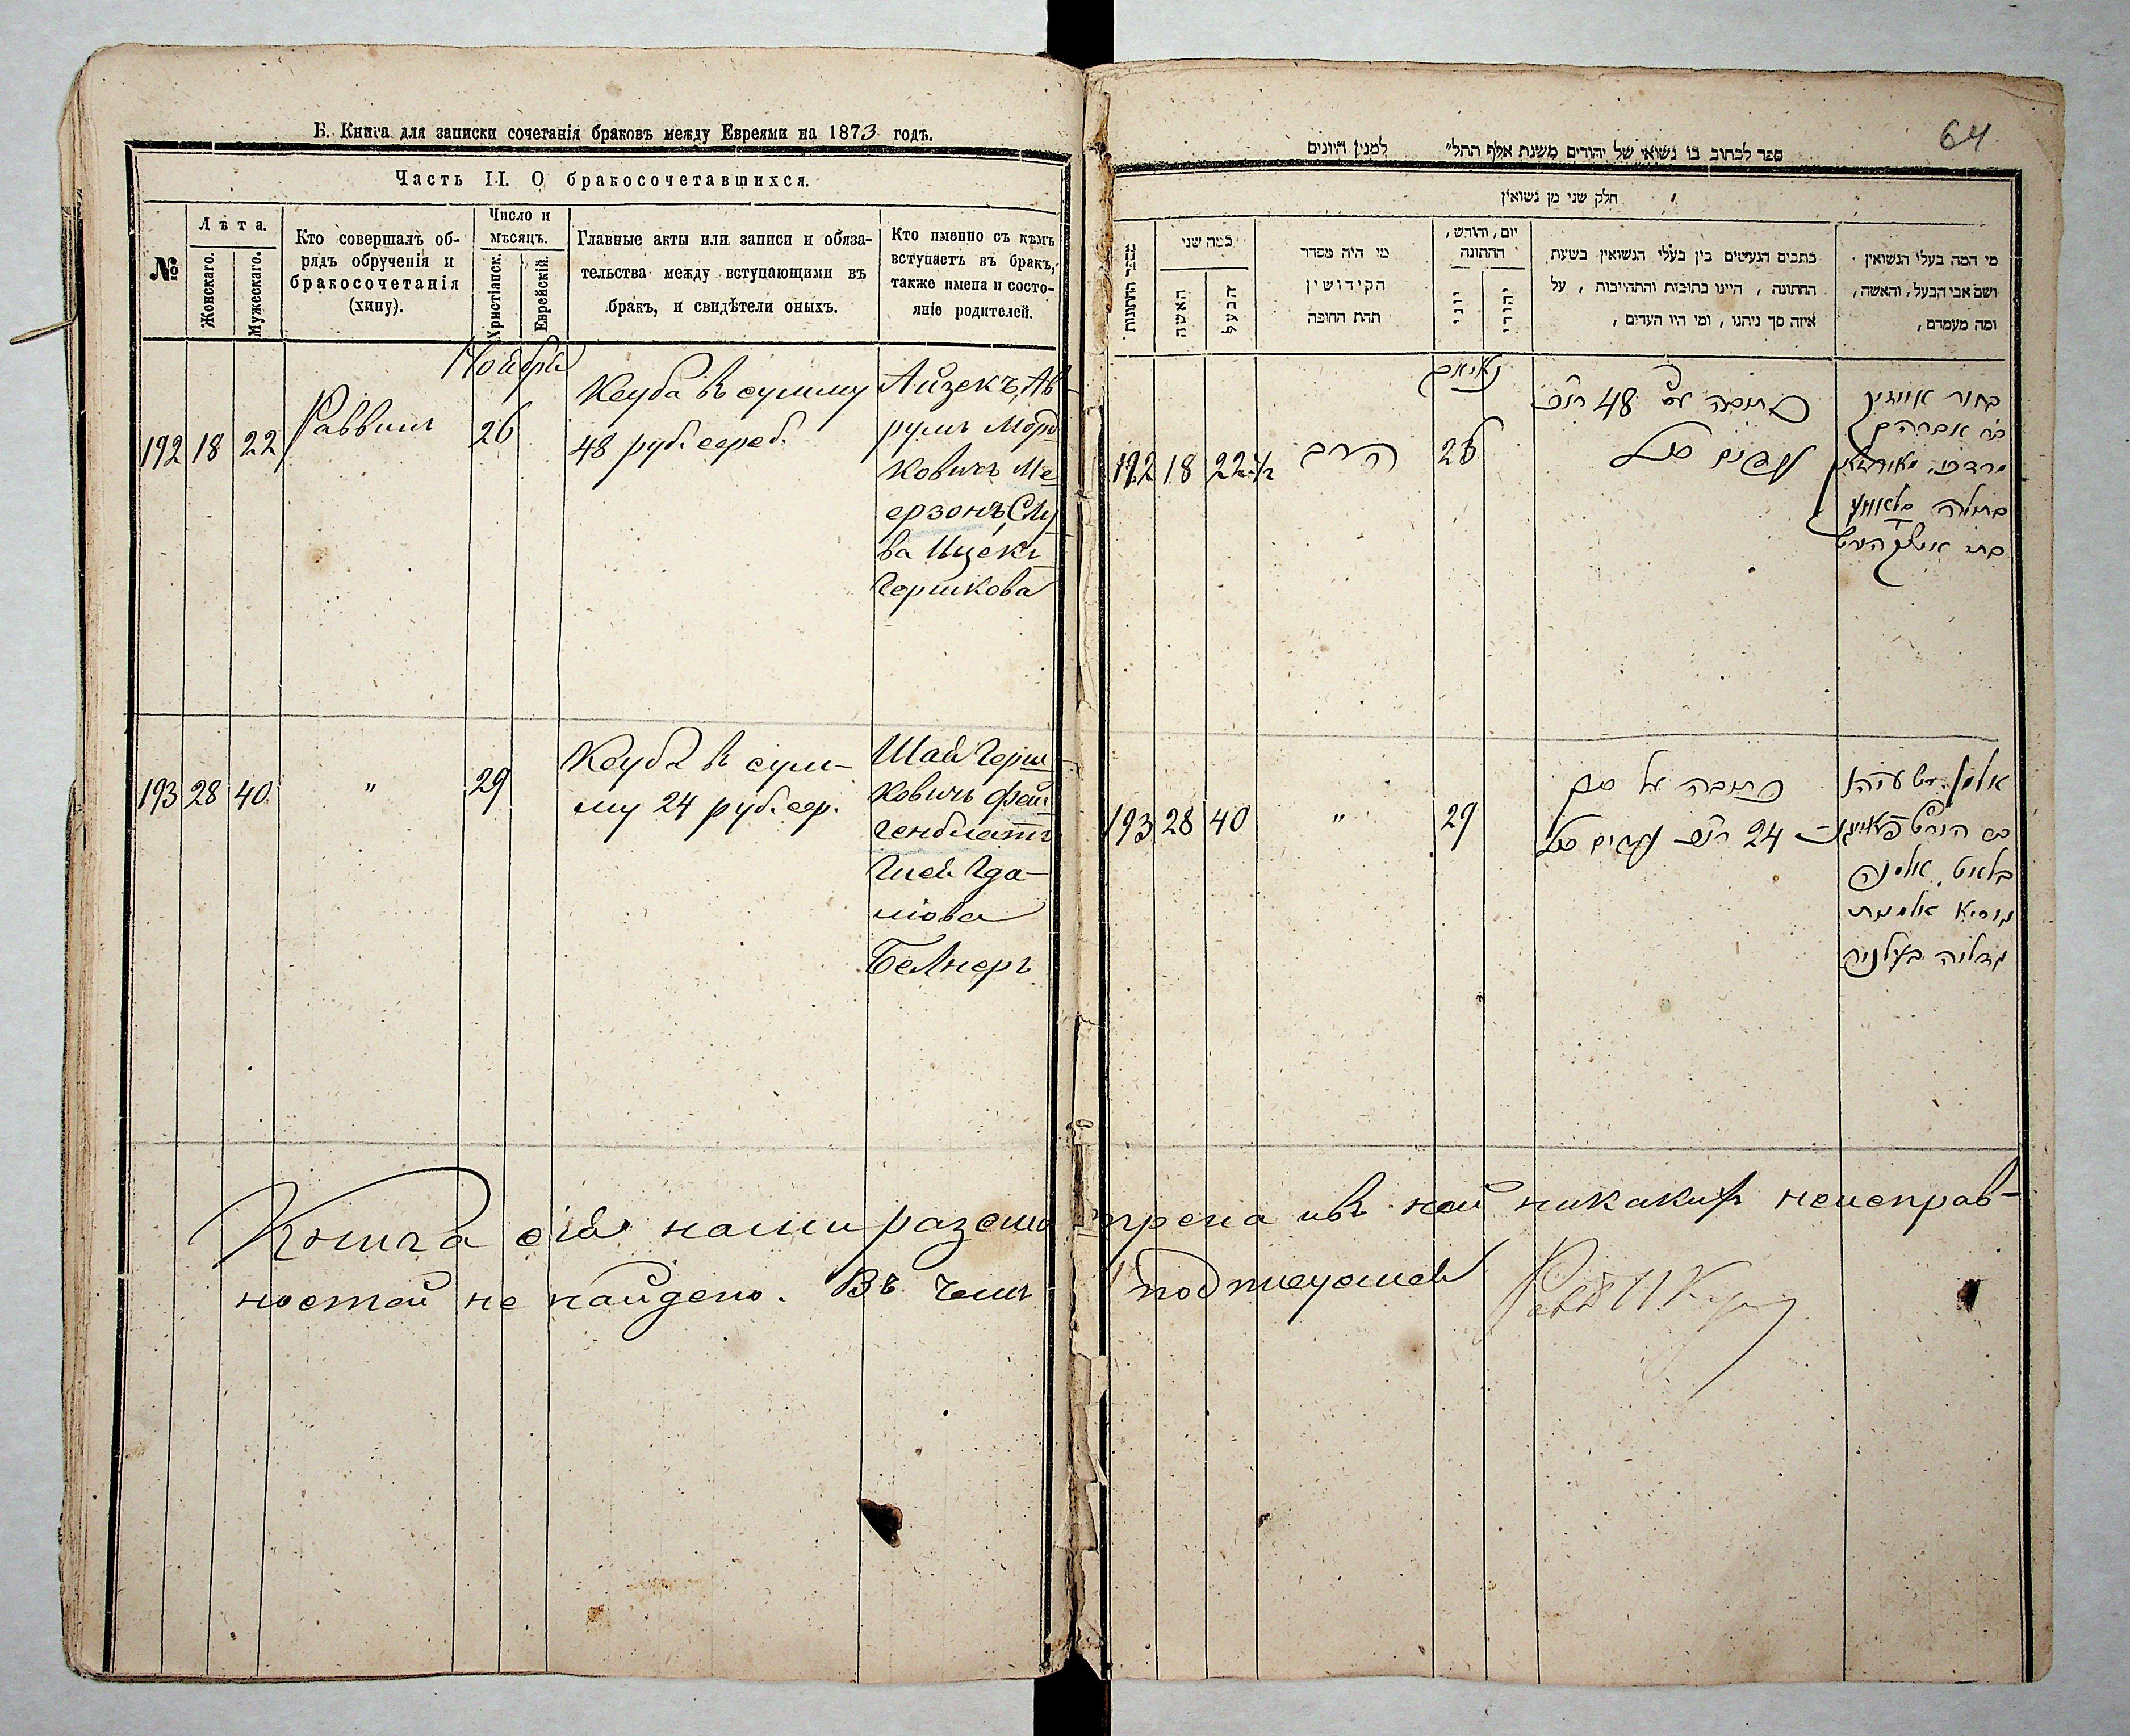 Б. Книга для записки сочетанія браковъ между Евреями на 1873 годъ.
Часть II. О бракосочетавшихся.
№
Лѣта.
Женскаго.
Мужескаго.
Кто совершалъ об-
рядъ обрученія и
бракосочетанія
(хину).
Число и
мѣсяцъ.
Христіанск.
Еврейскій.
Главные акты или записи и обяза-
тельства между вступающими въ
бракъ, и свидѣтели оныхъ.
Кто именно съ кѣмъ
вступаетъ въ бракъ,
также имена и состо-
яніе родителей.
Ноября
192 18 22 Раввинъ 26
Кеуба въ сумму
48 руб. сереб.
Айзекъ, Ав
румъ Морд
ковичъ Ме
ерзонъ, Слу
ва Ицекъ
Гершкова
193 28 40 " 29
Кеуба въ сум-
му 24 руб. сер.
Шая Герш
ковичъ Фей
генблатъ
Гдa-
ліова
Белнеръ
64
ספר לכתוב בו נשואי של יהודים משנת אלף תתל״ למנין היונים
חלק שני מן נשואין
מספר החתונות
כמה שני
האשה
הבעל
מי היה מסדר
הקידושין
תחת החופה
יום, וחודש,
החתונה
יוני
יהודי
כתבים הנעשים בין בעלי הנשואין בשעת
החתונה, היינו כתובות והתחייבות, על
איזה סך ניתנו, ומי היו העדים,
מי המה בעלי הנשואין
ושם אבי הבעל, והאשה,
ומה מעמדם,
192 18 22 1/2 הרב 26
כתובה 48
בחור אייזיק
אברהם
מרדכי
בתולה
193 28 40 " 29
כתובה על סך
24
אלמן ישעיהו
הירש פייגן
בלאט אלמנה
גיסיא אלמנת
גדליה בעלניר
Книга сія нами разсмотрена и въ ней никакихъ неисправ-
ностей не найдено. Въ чемъ подписуемся